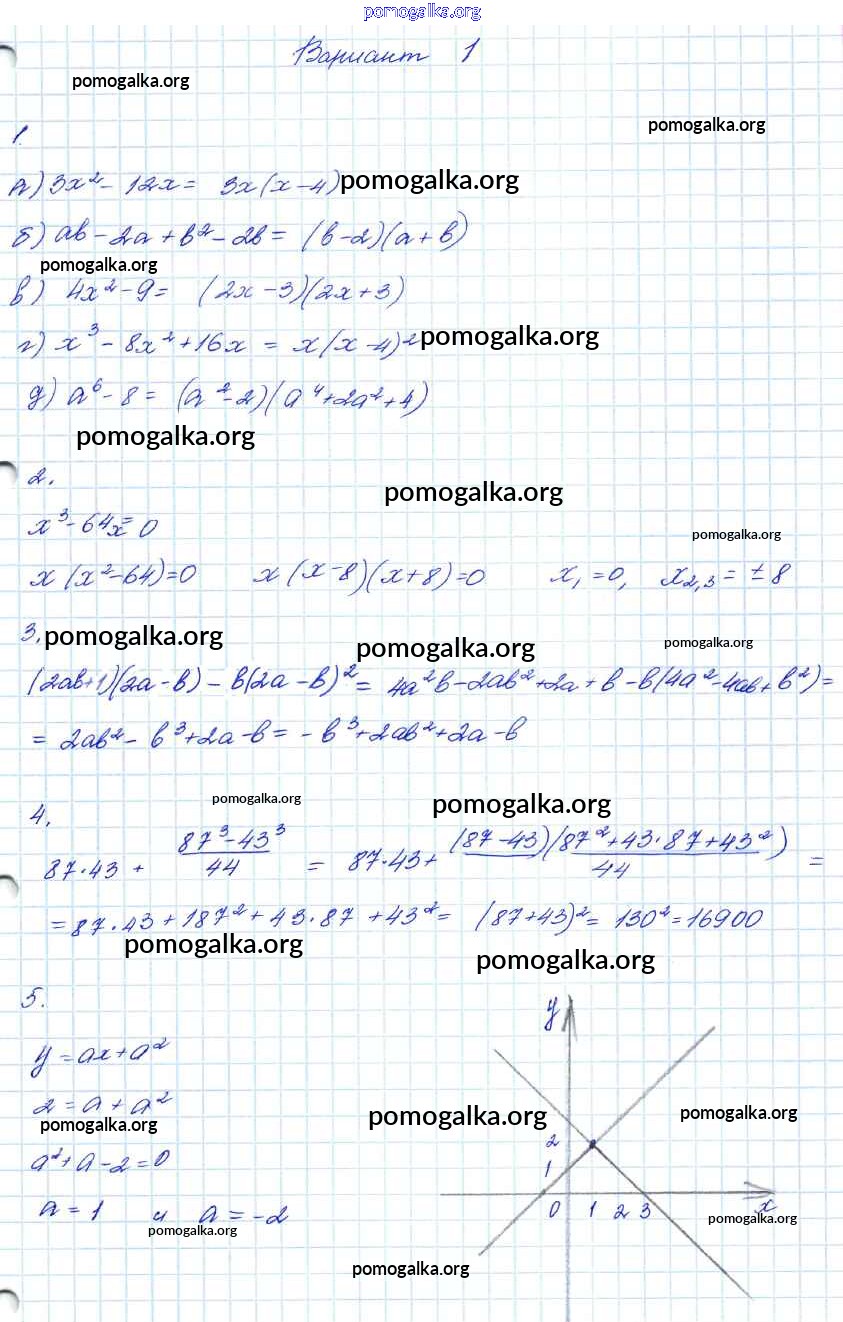 pomogalka.org
Вариант 1
pomogalka.org
pomogalka.org
1.
а) 3x² - 12x = 3x(x - 4) pomogalka.org
б) ab - 2a + b² - 2b = (b - 2)(a + b)
pomogalka.org
в) 4x² - 9 = (2x - 3)(2x + 3)
г) x³ - 8x² + 16x = x(x - 4)² pomogalka.org
д) a⁶ - 8 = (a² - 2)(a⁴ + 2a² + 4)
pomogalka.org
2.
pomogalka.org
x³ - 64x = 0
pomogalka.org
x(x² - 64) = 0 x(x - 8)(x + 8) = 0 x₁ = 0, x₂,₃ = ± 8
3. pomogalka.org
pomogalka.org
pomogalka.org
(2ab + 1)(2a - b) - b(2a - b)² = 4a²b - 2ab² + 2a + b - b(4a² - 4ab + b²) =
= 2ab² - b³ + 2a - b = - b³ + 2ab² + 2a - b
pomogalka.org
pomogalka.org
4.
87·43 + (87³ - 43³)/44 = 87·43 + (87 - 43)(87² + 43·87 + 43²)/44 =
= 87·43 + 187² + 43·87 + 43² = (87 + 43)² = 130² = 16900
pomogalka.org
pomogalka.org
5.
y = ax + a²
2 = a + a²
pomogalka.org
a² + a - 2 = 0
a = 1 и a = -2
pomogalka.org
y
pomogalka.org
pomogalka.org
2
1
0 1 2 3 x
pomogalka.org
pomogalka.org